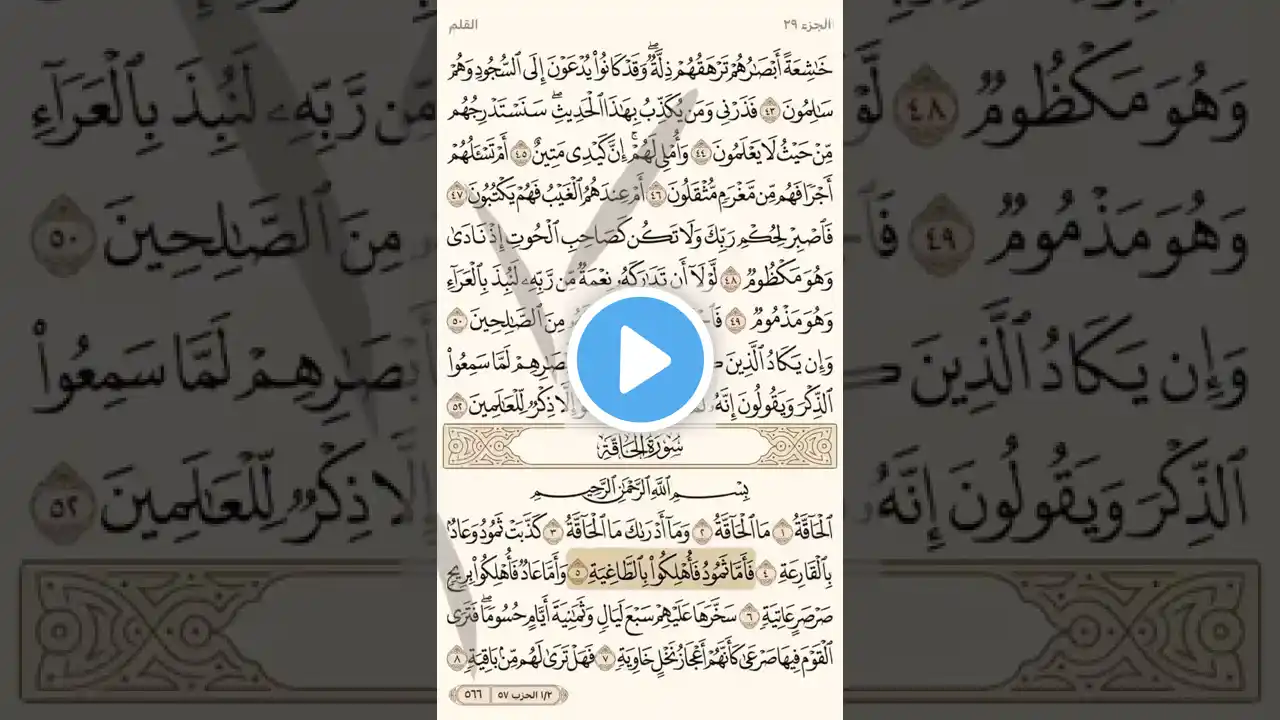 الجزء ٢٩
القلم
خَٰشِعَةً أَبْصَٰرُهُمْ تَرْهَقُهُمْ ذِلَّةٌ ۖ وَقَدْ كَانُوا۟ يُدْعَوْنَ إِلَى ٱلسُّجُودِ وَهُمْ
سَٰلِمُونَ ٤٣ فَذَرْنِى وَمَن يُكَذِّبُ بِهَٰذَا ٱلْحَدِيثِ ۖ سَنَسْتَدْرِجُهُم
مِّنْ حَيْثُ لَا يَعْلَمُونَ ٤٤ وَأُمْلِى لَهُمْ ۚ إِنَّ كَيْدِى مَتِينٌ ٤٥ أَمْ تَسْـَٔلُهُمْ
أَجْرًا فَهُم مِّن مَّغْرَمٍ مُّثْقَلُونَ ٤٦ أَمْ عِندَهُمُ ٱلْغَيْبُ فَهُمْ يَكْتُبُونَ ٤٧
فَٱصْبِرْ لِحُكْمِ رَبِّكَ وَلَا تَكُن كَصَاحِبِ ٱلْحُوتِ إِذْ نَادَىٰ
وَهُوَ مَكْظُومٌ ٤٨ لَّوْلَآ أَن تَدَٰرَكَهُۥ نِعْمَةٌ مِّن رَّبِّهِۦ لَنُبِذَ بِٱلْعَرَآءِ
وَهُوَ مَذْمُومٌ ٤٩ مِنَ ٱلصَّٰلِحِينَ ٥٠
وَإِن يَكَادُ ٱلَّذِينَ لَمَّا سَمِعُوا۟
ٱلذِّكْرَ وَيَقُولُونَ إِنَّهُۥ إِلَّا ذِكْرٌ لِّلْعَٰلَمِينَ ٥٢
سُورَةُ الحَاقَّةِ
بِسْمِ ٱللَّهِ ٱلرَّحْمَٰنِ ٱلرَّحِيمِ
ٱلْحَآقَّةُ ١ مَا ٱلْحَآقَّةُ ٢ وَمَآ أَدْرَىٰكَ مَا ٱلْحَآقَّةُ ٣ كَذَّبَتْ ثَمُودُ وَعَادٌۢ
بِٱلْقَارِعَةِ ٤ فَأَمَّا ثَمُودُ فَأُهْلِكُوا۟ بِٱلطَّاغِيَةِ ٥ وَأَمَّا عَادٌ فَأُهْلِكُوا۟ بِرِيحٍ
صَرْصَرٍ عَاتِيَةٍ ٦ سَخَّرَهَا عَلَيْهِمْ سَبْعَ لَيَالٍ وَثَمَٰنِيَةَ أَيَّامٍ حُسُومًا ۖ فَتَرَى
ٱلْقَوْمَ فِيهَا صَرْعَىٰ كَأَنَّهُمْ أَعْجَازُ نَخْلٍ خَاوِيَةٍ ٧ فَهَلْ تَرَىٰ لَهُم مِّنۢ بَاقِيَةٍ ٨
١/٢ الحزب ٥٧
٥٦٦